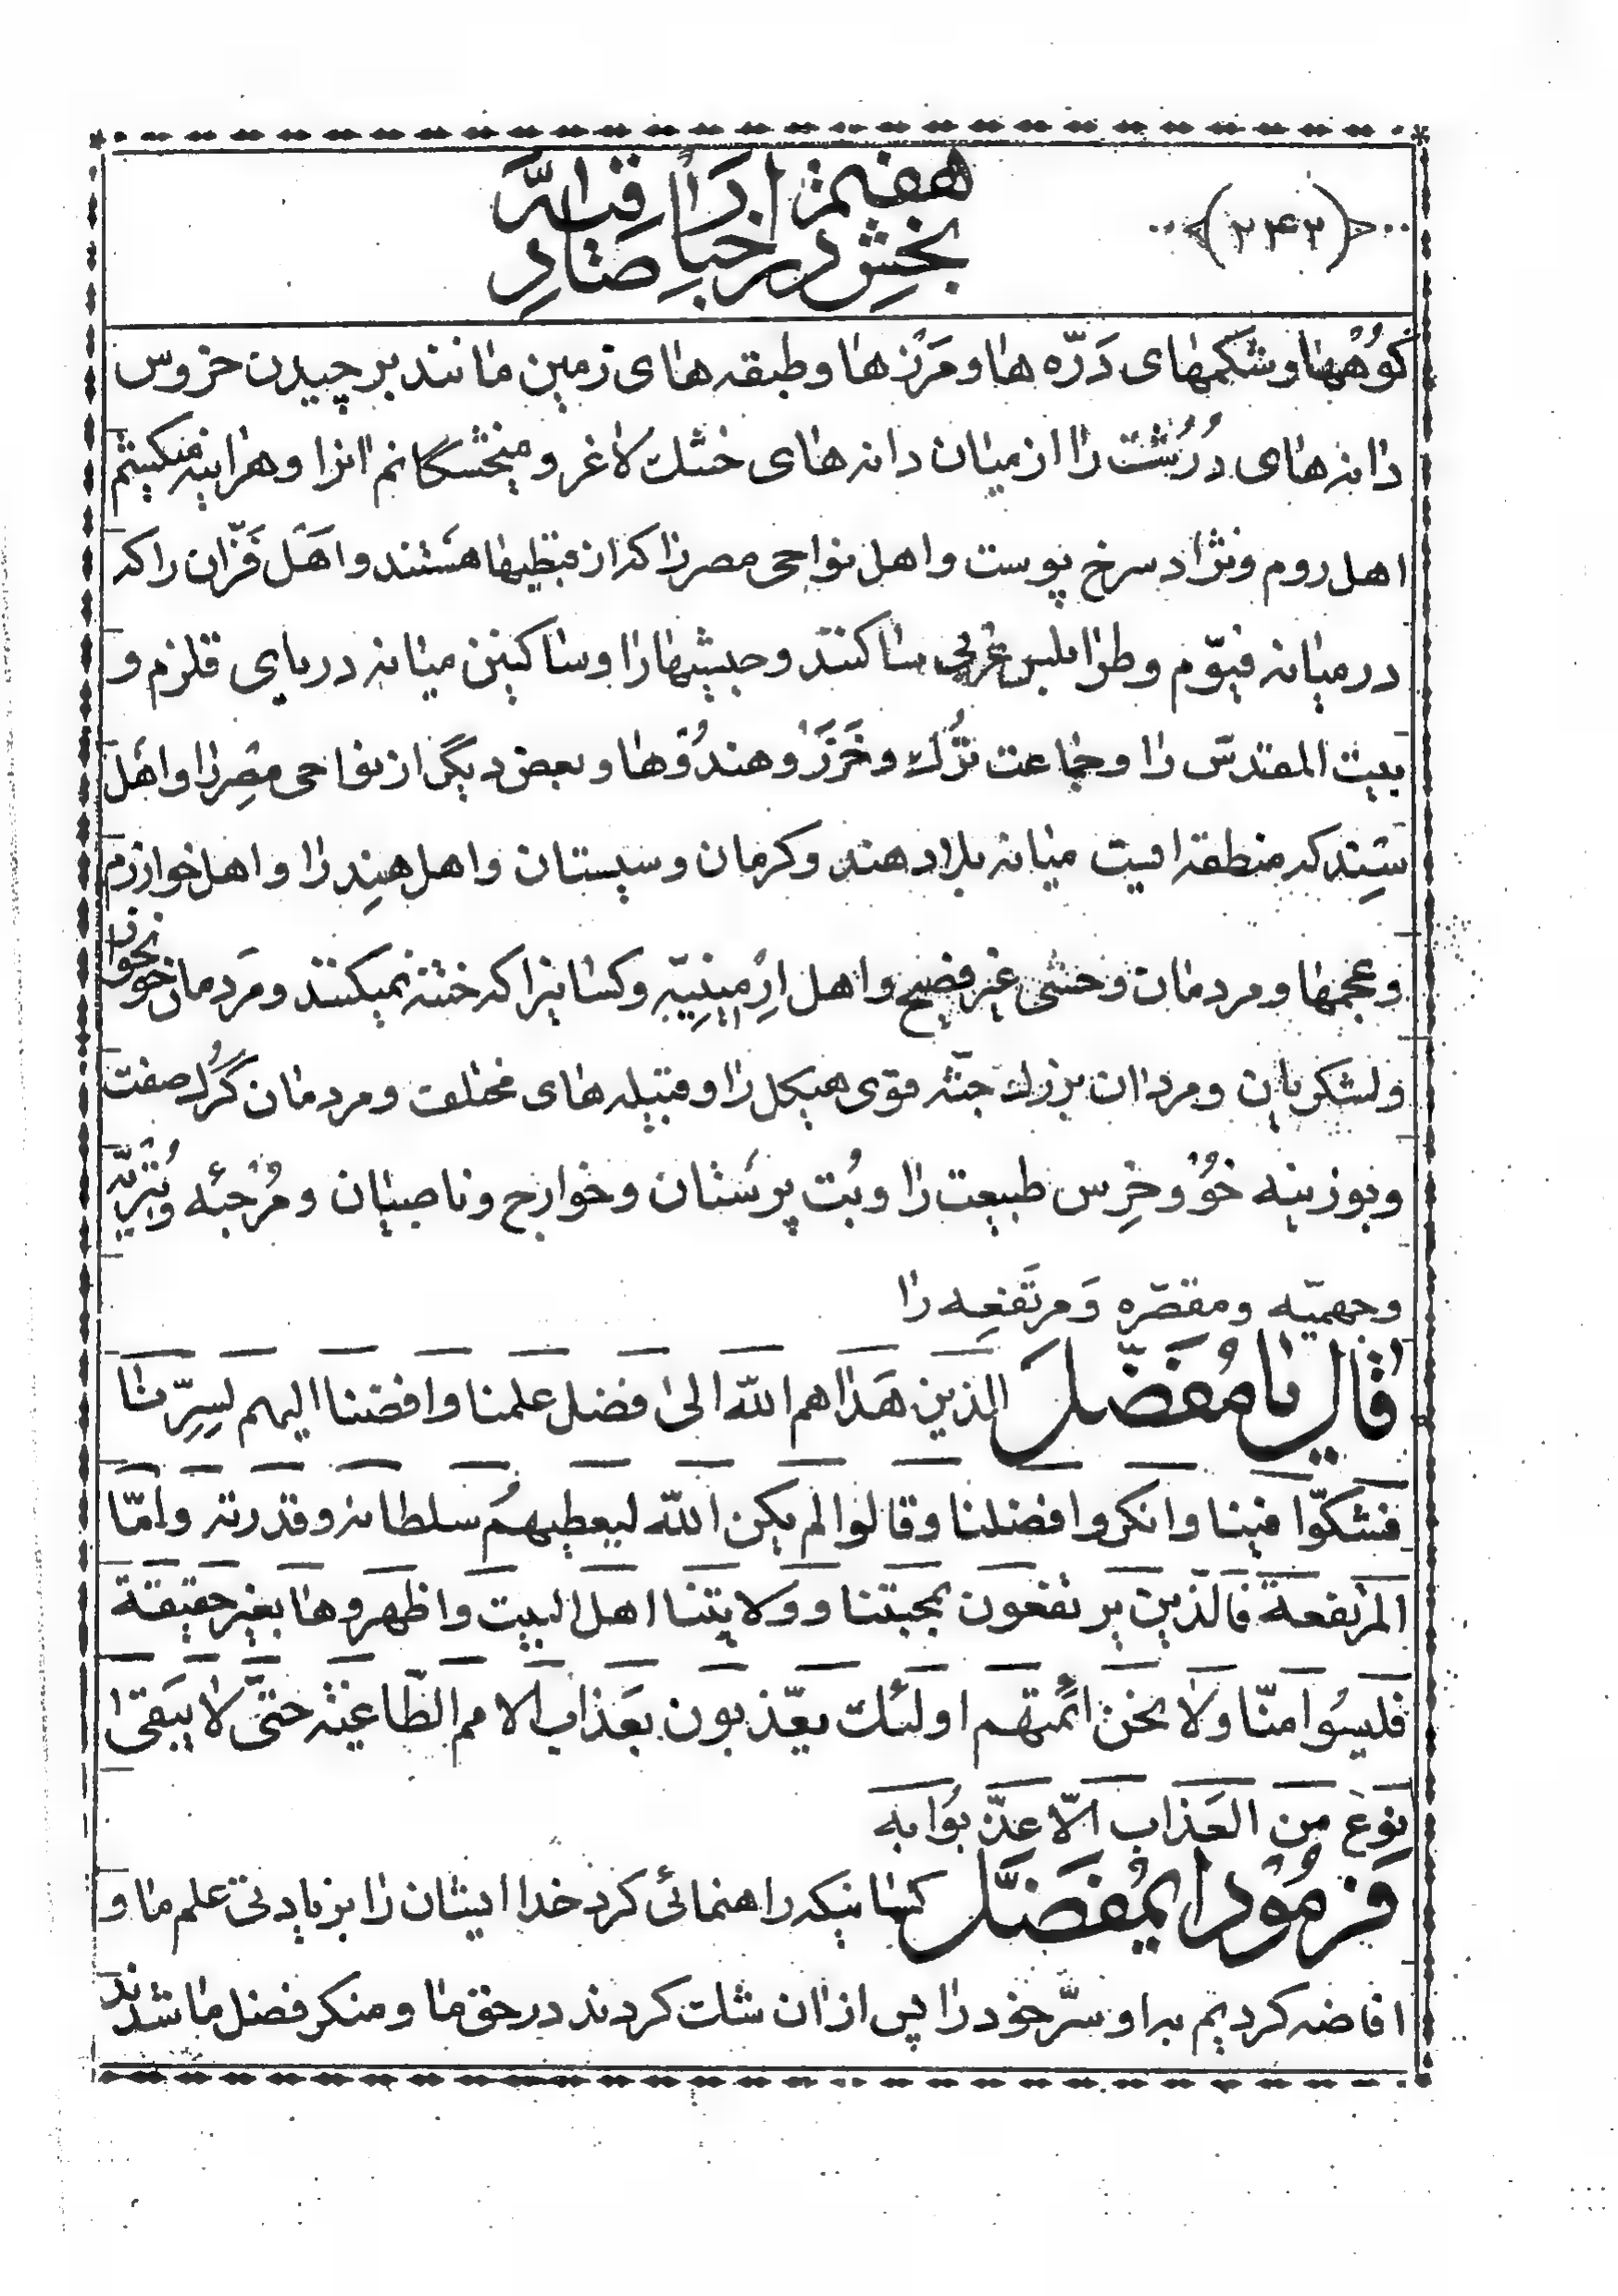 ﴿۲۴۳﴾
بخش هفتم در اخبار صادقیه
کوهها و شکمهای درّه ها و مرزها و طبقه های زمین مانند برچیدن خروس
دانه های دُرُشت را از میان دانه های خشک لاغر و میخشکانم انرا و هراینه میکشم
اهل روم و نژاد سرخ پوست و اهل نواحی مصر را که از قبطیها هستند و اهل فزّان را که
در میانه فیّوم و طرابلس غربی ساکنند و حبشیها را و ساکنین میانه دریای قلزم و
بیت المقدس را و جماعت تُرک و خَزَر و هندُوها و بعض دیگر از نواحی مصر را و اهل
سِند که منطقه ایست میانه بلاد هند و کرمان و سیستان و اهل هِند را و اهل خوارزم
و عجمها و مردمان وحشی غیر فصیح و اهل اِرْمینِیّه و کسانیرا که ختنه نمیکنند و مَردمان خونخوار
و لشکریان و مردان بزرک جثّه قوی هیکل را و قبیله های مختلف و مردمان گُرک صفت
و بوزینه خُوْ و خِرس طبیعت را و بُت پرستان و خوارج و ناصبیان و مُرْجئه و بُتَریّه
و جهمیّه و مقصّره وَ مرتَفعِه را
قال یا مُفَضّل الذین هَداهم الله الی فضل علمنا و افضنا الیهم لسِرّنا
فشکّوا فینا و انکروا فضلنا و قالوا لم یکن الله لیعطیهمُ سلطانه و قدرته و امّا
المرتفعة فالذین یرتفعون بمحبتنا و ولایتنا اهل البیت و اظهروها بغیر حقیقة
فلیسُوا منّا و لا نحن ائمّتهم اولئک یعّذبون بعَذاب الامم الطّاغیة حتیّ لا یبَقی
نوع من العَذاب الاّ عذّبوا به
فرمُود ایمُفَضَّل کسانیکه راهنمائی کرد خدا ایشان را بزیادتی علم ما و
افاضه کردیم براو سرّ خود را پس ازان شک کردند در حق ما و منکر فضل ما شدند